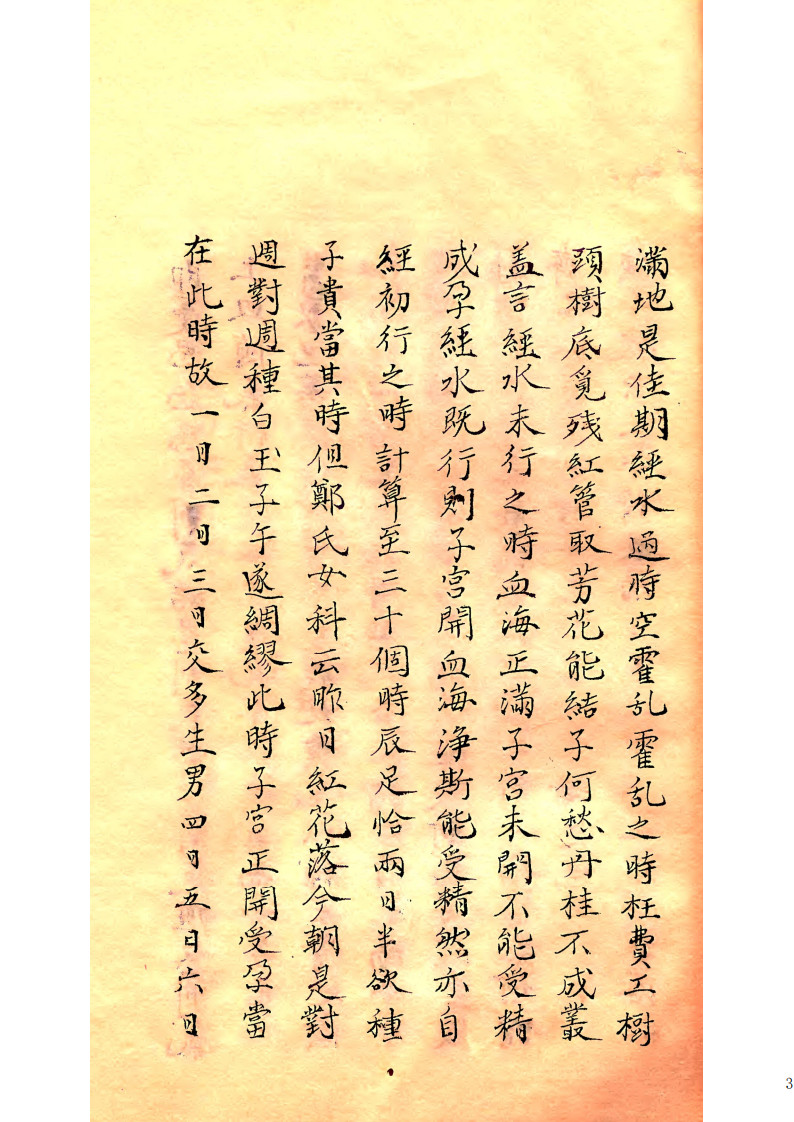 滿地是佳期經水過時空霍乱霍乱之時枉費工樹
頭樹底覓残紅管取芳花能結子何愁丹桂不成叢
盖言經水未行之時血海正滿子宮未開不能受精
成孕經水既行則子宮開血海浄斯能受精然亦自
經初行之時計算至三十個時辰足恰兩日半欲種
子貴當其時但鄭氏女科云昨日紅花落今朝是對
週對週種白玉子午遂綢繆此時子宮正開受孕當
在此時故一日二日三日交多生男四日五日六日
3